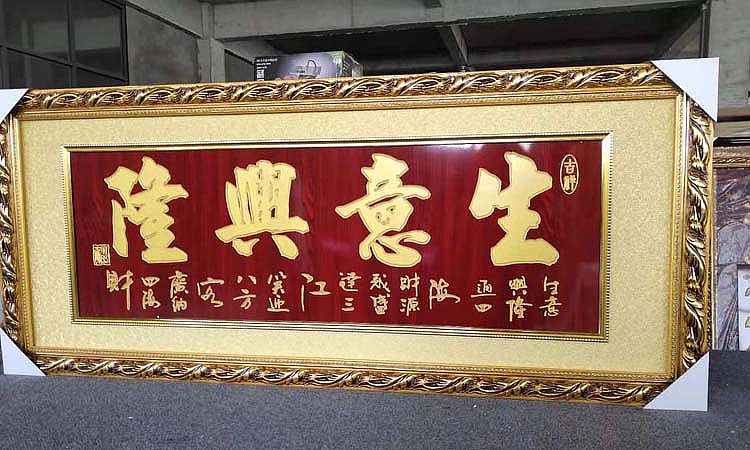 吉祥
生意興隆
生意
興隆
通四
海
財源
茂盛
達三
江
笑迎
八方
客
廣納
四海
財